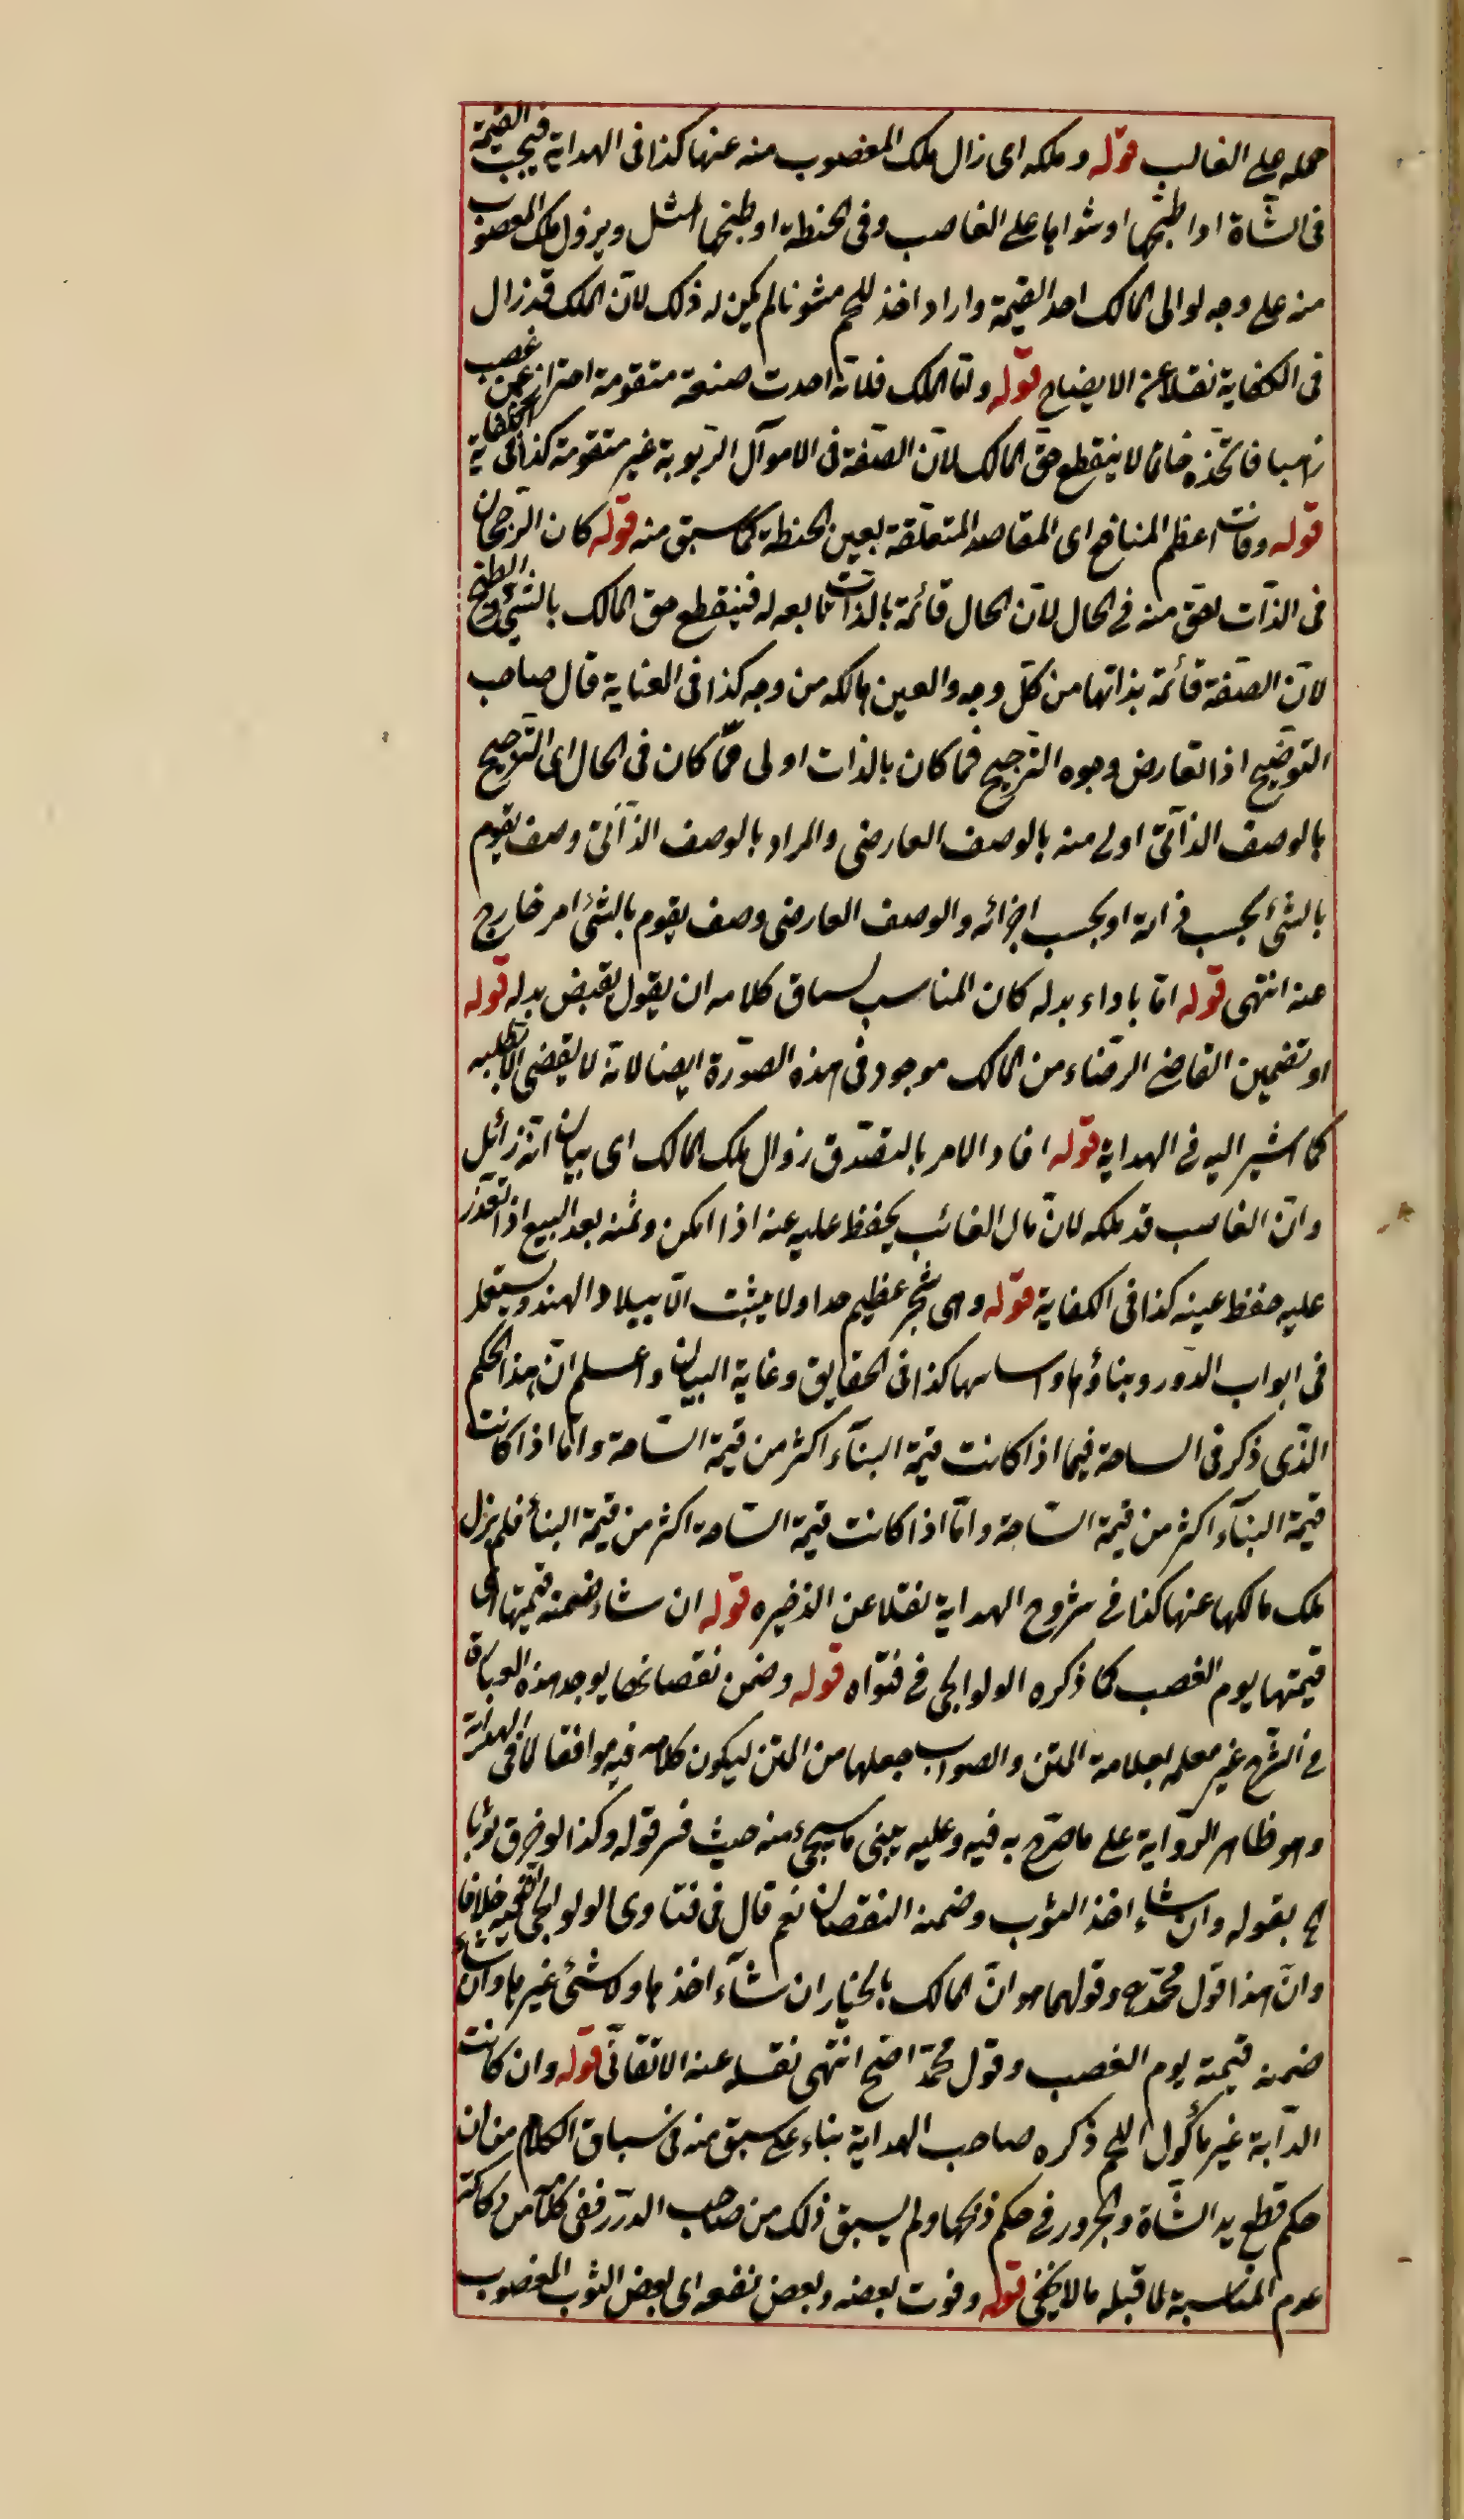 حمله على الغالب قوله وملكه اى زال ملك المغصوب منه عنها كذا فى الهداية فيجب القيمة
فى الشاة اذا طبخها او شواها على الغاصب وفى الحنطة او طبخها المثل ويزول ملك المغصوب
منه على وجه لو الى المالك اخذ القيمة واراد اخذ اللحم مشويا لم يكن له ذلك لان الملك قد زال
فى الكفاية نقلا عن الايضاح قوله ولنا الملك فلانه احدث صنعة متقومة احتراز عمن غصب
ذهبا فاتخذه خاتما لا ينقطع حق المالك لان الصنعة فى الاموال الربوية غير متقومة كذا فى الكفاية
قوله وفات اعظم المنافع اى المقاصد المتعلقة بعين الحنطة كما سبق منه قوله كان الرجحان
فى الذات احق منه فى الحال لان الحال قائمة بالذات تابعه له فينقطع حق المالك بالشئ والطبخ
لان الصنعة قائمة بذاتها من كل وجه والعين هالكه من وجه كذا فى العناية قال صاحب
التوضيح اذا تعارض وجوه الترجيح فما كان بالذات اولى مما كان فى الحال اى الترجيح
بالوصف الذاتى اولى منه بالوصف العارضى والمراد بالوصف الذاتى وصف يقوم
بالشئ بحسب ذاته او بحسب اجزائه والوصف العارضى وصف يقوم بالشئ امر خارج
عنه انتهى قوله اما باداء بدله كان المناسب لسياق كلامه ان يقول بقبض بدله قوله
او تضمين القاضى الرضاء من المالك موجود فى هذه الصورة ايضا لانه لا يقضى الا بطلبه
كما اشير اليه فى الهداية قوله افاد الامر بالتصدق زوال ملك المالك اى بيان انه زائل
وان الغاصب قد ملكه لان مال الغائب يحفظ عليه عنه اذا امكن وثمنه بعد البيع اذا تعذر
عليه حفظ عينه كذا فى الكفاية قوله وهى شجر عظيم جدا ولا ينبت الا ببيلاد الهند ويستعمل
فى ابواب الدور وبناؤها واساسها كذا فى الحقايق وغاية البيان واعلم ان هذا الحكم
الذى ذكر فى الساحة فيما اذا كانت قيمة البناء اكثر من قيمة الساحة واما اذا كانت
قيمة البناء اكثر من قيمة الساحة واما اذا كانت قيمة الساحة اكثر من قيمة البناء فلم يزل
ملك مالكها عنها كذا فى شروح الهداية نقلا عن الذخيره قوله ان شاء ضمنه قيمتها اى
قيمتها يوم الغصب كما ذكره الولوالجى فى فتواه قوله وضمن نقصانها يوجد هذه العبارة
فى الشرح غير معلمه بعلامة المتن والصواب جعلها من المتن ليكون كلامه فيه موافقا لما فى الهداية
وهو ظاهر الرواية على ما صرح به فيه وعليه يبنى ما سيجئ منه حيث فسر قوله وكذا لو خرق ثوبا
الخ بقوله وان شاء اخذ الثوب وضمنه النقصان نعم قال فى فتاوى الولوالجى الفقيه خلافا
وان هذا قول محمد رح وقولهما هو ان المالك بالخيار ان شاء اخذها ولا شئ غيرها وان شاء
ضمنه قيمته يوم الغصب وقول محمد اصح انتهى نقله عنه الاتقانى قوله وان كانت
الدابة غير مأكول اللحم ذكره صاحب الهداية بناء على سبق منه فى سباق الكلام من ان
حكم قطع يد الشاة والجزور فى حكم ذبحها ولم يسبق ذلك من صاحب الدرر ففى كلامه
عدم المناسبة لما قبله ما لا يخفى قوله وفوت بعضه وبعض نفعه اى بعض الثوب المغصوب